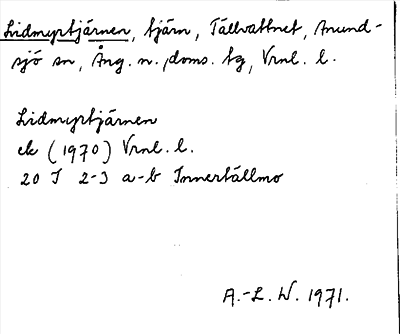 Lidmyrtjärnen, tjärn, Tällvattnet, Anund-
sjö sn, Ång. n. doms. tg, Vrnl. l.
Lidmyrtjärnen
ek (1970) Vrnl. l.
20 I 2-3 a-b Innertällmo
A.-L. W. 1971.